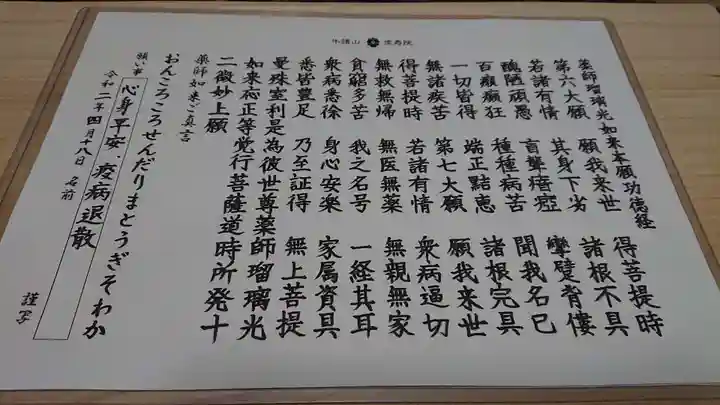 薬師瑠璃光如来本願功徳経
第六大願 願我来世 得菩提時
若諸有情 其身下劣 諸根不具
醜陋頑愚 盲聾瘖瘂 攣躄背僂
百癩癲狂 種種病苦 聞我名已
一切皆得 端正黠恵 諸根完具
無諸疾苦 第七大願 願我来世
得菩提時 若諸有情 衆病逼切
無救無帰 無医無薬 無親無家
貧窮多苦 我之名号 一経其耳
衆病悉徐 身心安楽 家属資具
悉皆豊足 乃至証得 無上菩提
曼珠室利是為彼世尊薬師瑠璃光
如来応正等覚行菩薩道時所発十
二微妙上願
薬師如来ご真言
おんころころせんだりまとうぎそわか
願い事 心身早安、疫病退散
令和二年四月十八日 名前 謹写